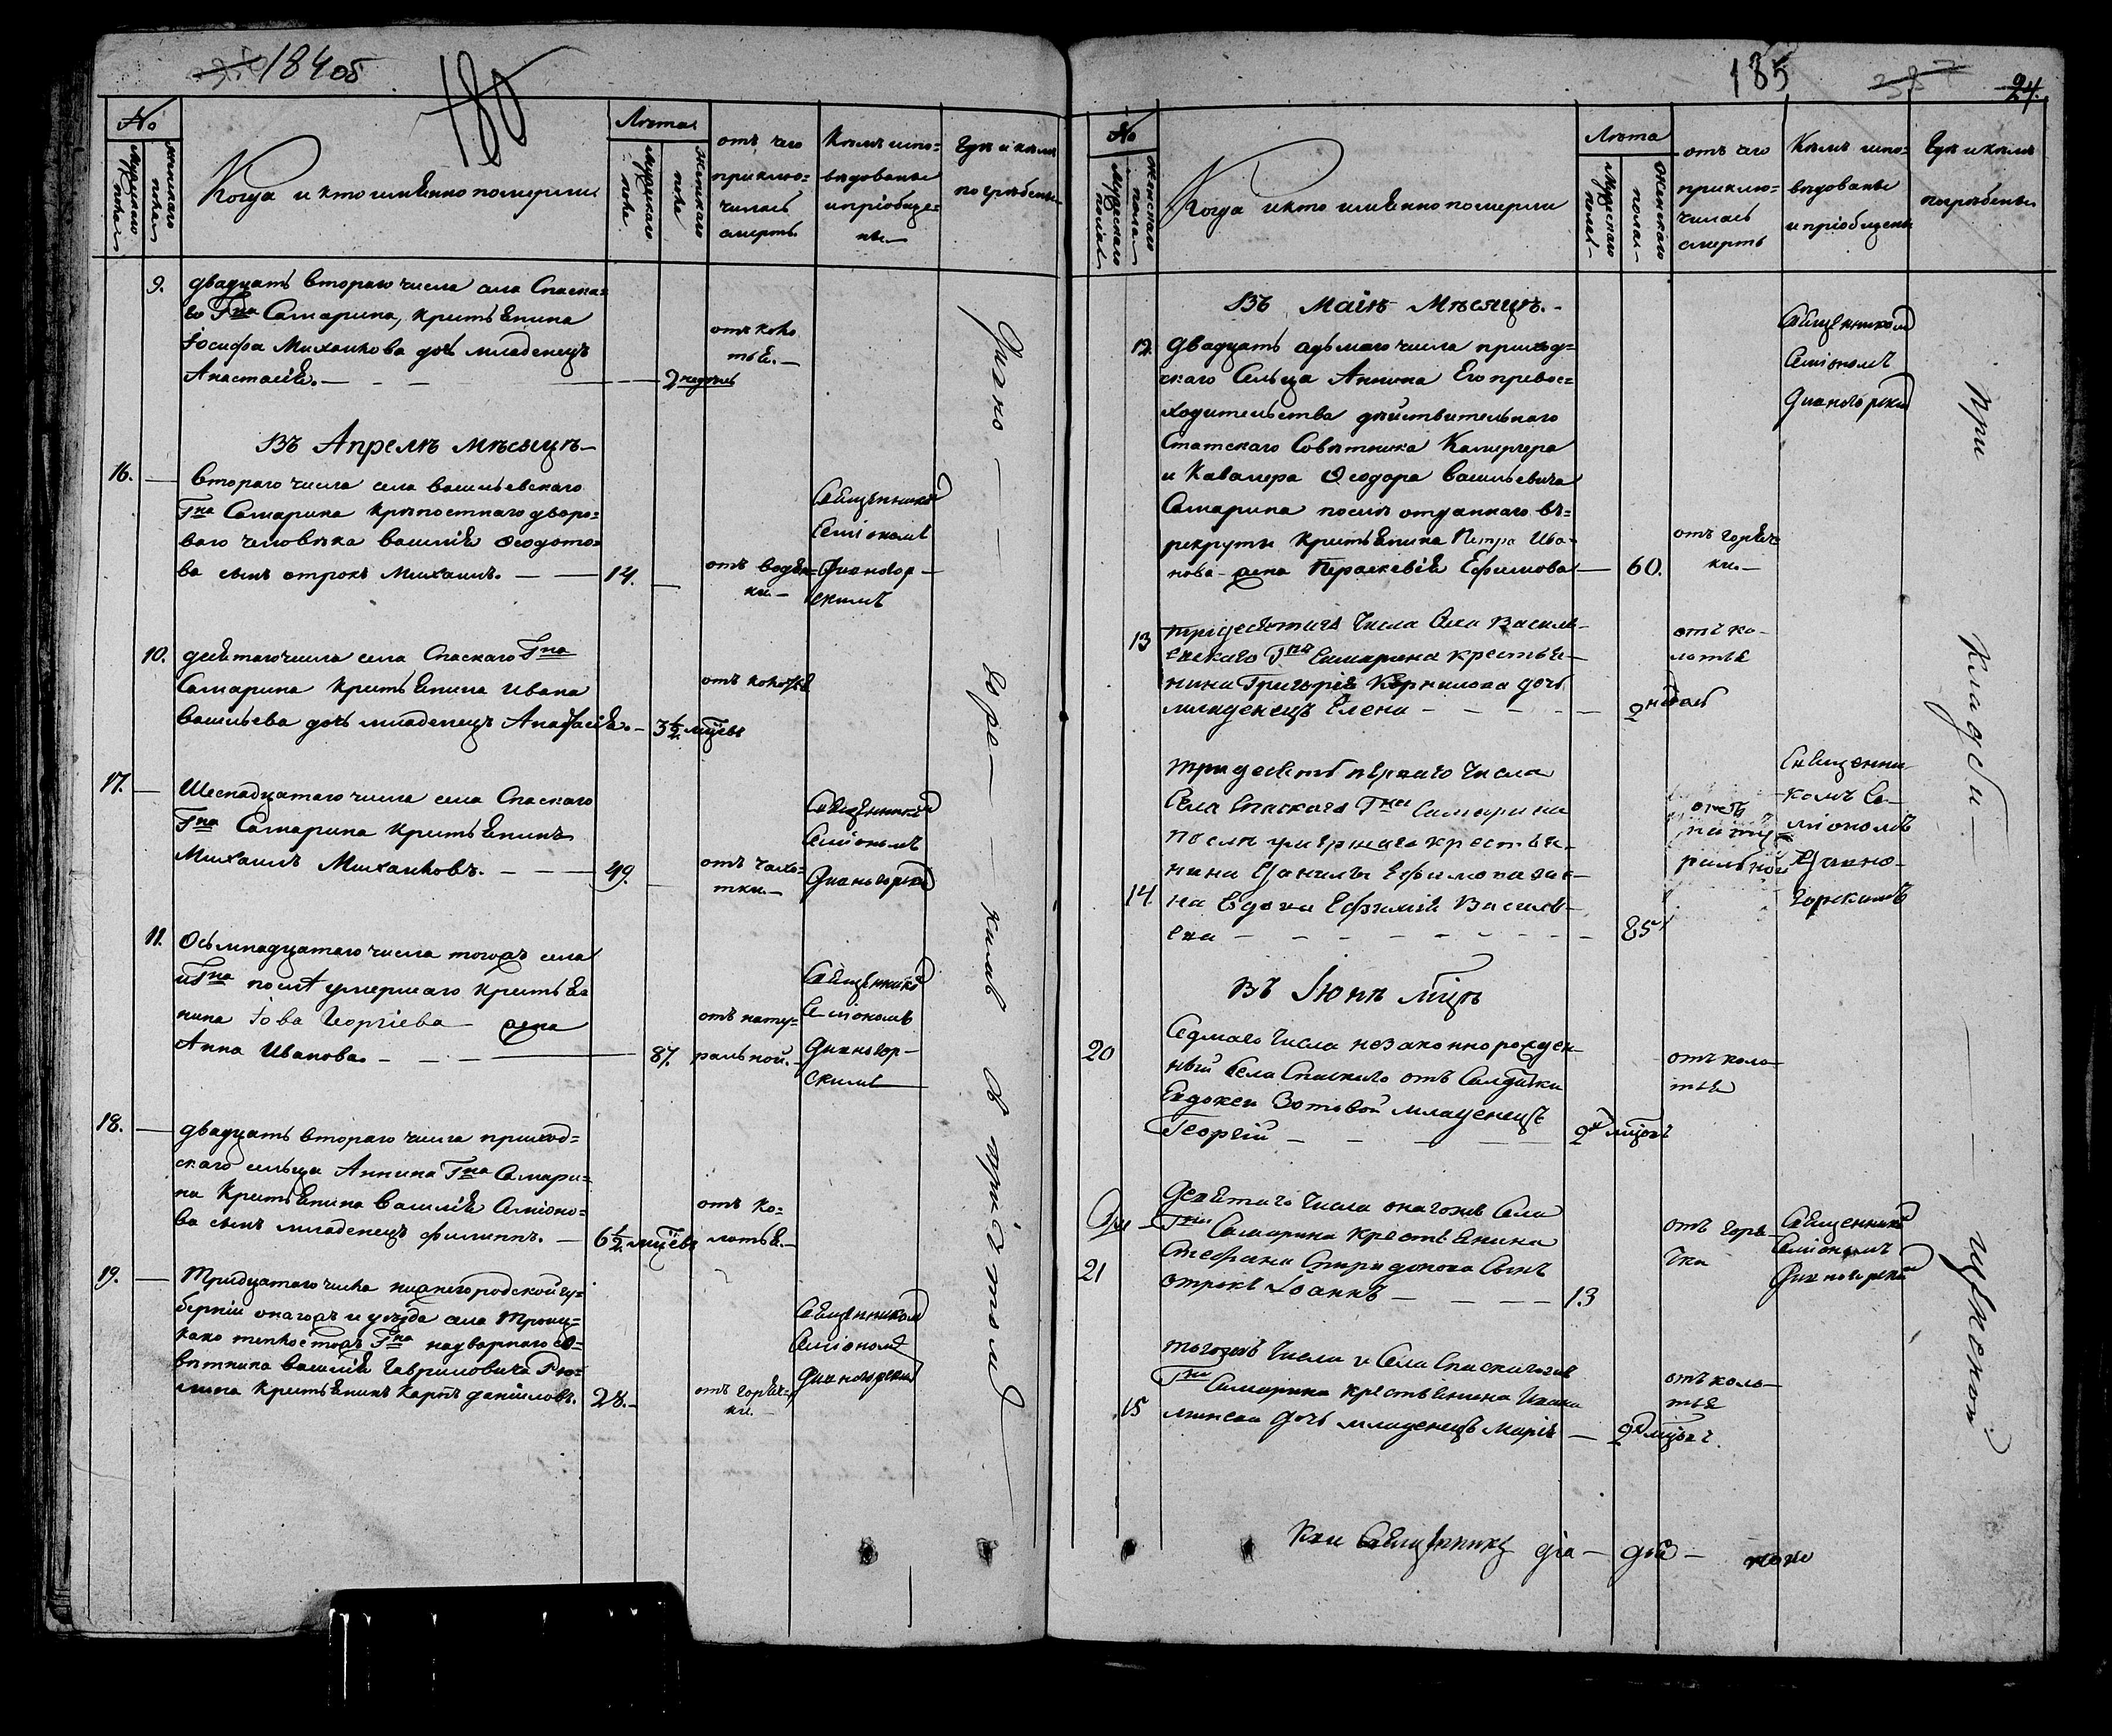 184об
180
№
Мужескаго пола
Женскаго пола
Когда и кто имянно померли
Лѣта
Мужескаго пола
Женскаго пола
отъ чего приклю=
чилась
смерть
Кѣмъ испо=
вѣдованы
и пріобще=
ны
Гдѣ и кѣмъ
погрѣбены
9.
двадцать втораго числа села Спаска=
го Гна Самарина, крестьянина
Іосифа Михайлова дочь младенецъ
Анастасія. —
2 недель
отъ коло
тья. —
Въ Апрелѣ мѣсяцѣ —
16.
втораго числа села васильевскаго
Гна Самарина крѣпостнаго дворо=
ваго человѣка василія Ѳеодото=
ва сынъ отрокъ Михаилъ. —
14.
отъ водян=
ки. —
Священникомъ
Семіономъ
Дивногор—
скимъ
10.
десятаго числа села Спаскаго Гна
Самарина крестьянина Ивана
васильева дочь младенецъ Анастасія. —
3½ мцѣвъ
отъ колотья
17.
Шеснадцатаго числа села Спаскаго
Гна Самарина крестьянинъ
Михаилъ Михайловъ. —
49.
отъ чахо=
тки. —
Священникомъ
Семіономъ
Дивногорскимъ
11.
Осьмнадцатаго числа тогожъ села
и Гна послѣ умершаго крестья=
нина Іова Георгіева жена
Анна Иванова. —
87.
отъ нату=
ральной. —
Священникомъ
Семіономъ
Дивногор—
скимъ
18.
двадцать втораго числа приход=
скаго сельца Аннина Гна Самари=
на крестьянина василія Семіоно=
ва сынъ младенецъ филиппъ. —
6½ мцѣвъ
отъ ко=
лотья. —
19.
Тридцатаго числа нижегородской гу=
берніи онагожъ и уѣзда села Троиц=
каго Гна надворнаго со=
вѣтника василія Гавриловича
крестьянинъ Карпъ даніиловъ.
28. —
отъ горяч=
ки. —
Священникомъ
Семіономъ
Дивногорскимъ
185
24.
№
Мужескаго пола
Женскаго пола
Когда и кто имянно померли
Лѣта
Мужескаго пола
Женскаго пола
отъ чего
приклю=
чилась
смерть
Кѣмъ испо=
вѣдованы
и пріобщены
Гдѣ и кѣмъ
погрѣбены
Въ Маіѣ Мѣсяцѣ. —
12.
двадцать седьмаго числа приход=
скаго Сельца Аннина Его превос=
ходительства дѣйствительнаго
Статскаго Совѣтника Камергера
и Кавалера Ѳеодора васильевича
Самарина послѣ отданнаго въ=
рекруты крестьянина Петра Ива=
нова жена Параскевія Ефимова —
60.
отъ горяч
ки. —
Священникомъ
Семіономъ
Дивногорскимъ
13
тридесятаго числа Села Василь—
евскаго Гна Самарина крестья—
нина Григорія Корнилова дочь
младенецъ Елена —
2 недель
отъ ко—
лотья
14
тридесять перваго числа
Села Спаскаго Гна Самарина
послѣ умершаго крестья—
нина Данилы Ефимова же—
на вдова Ефимія Василь—
ева —
85
отъ
нату—
ральной
Священни
комъ Се—
міономъ
Дивно—
горскимъ
въ Іюнѣ мцѣ
20
Седмаго числа незаконнорожден—
ный Села Спаскаго отъ Салдатки
Евдокеи Зотовой младенецъ
Георгій —
2х мцовъ
отъ коло—
тья
21
Девятаго числа онагожъ Села
Гна Самарина крестьянина
Стефана Спиридонова Сынъ
отрокъ Іоаннъ —
13
отъ горя—
чки
Священникомъ
Семіономъ
Дивногорскимъ
15
тогожъ числа и Села Спаскагожъ
Гна Самарина крестьянина
дочь младенецъ Марія —
2х мцовъ.
отъ коло—
тья
При кладби— — церкви
Священникъ діа—